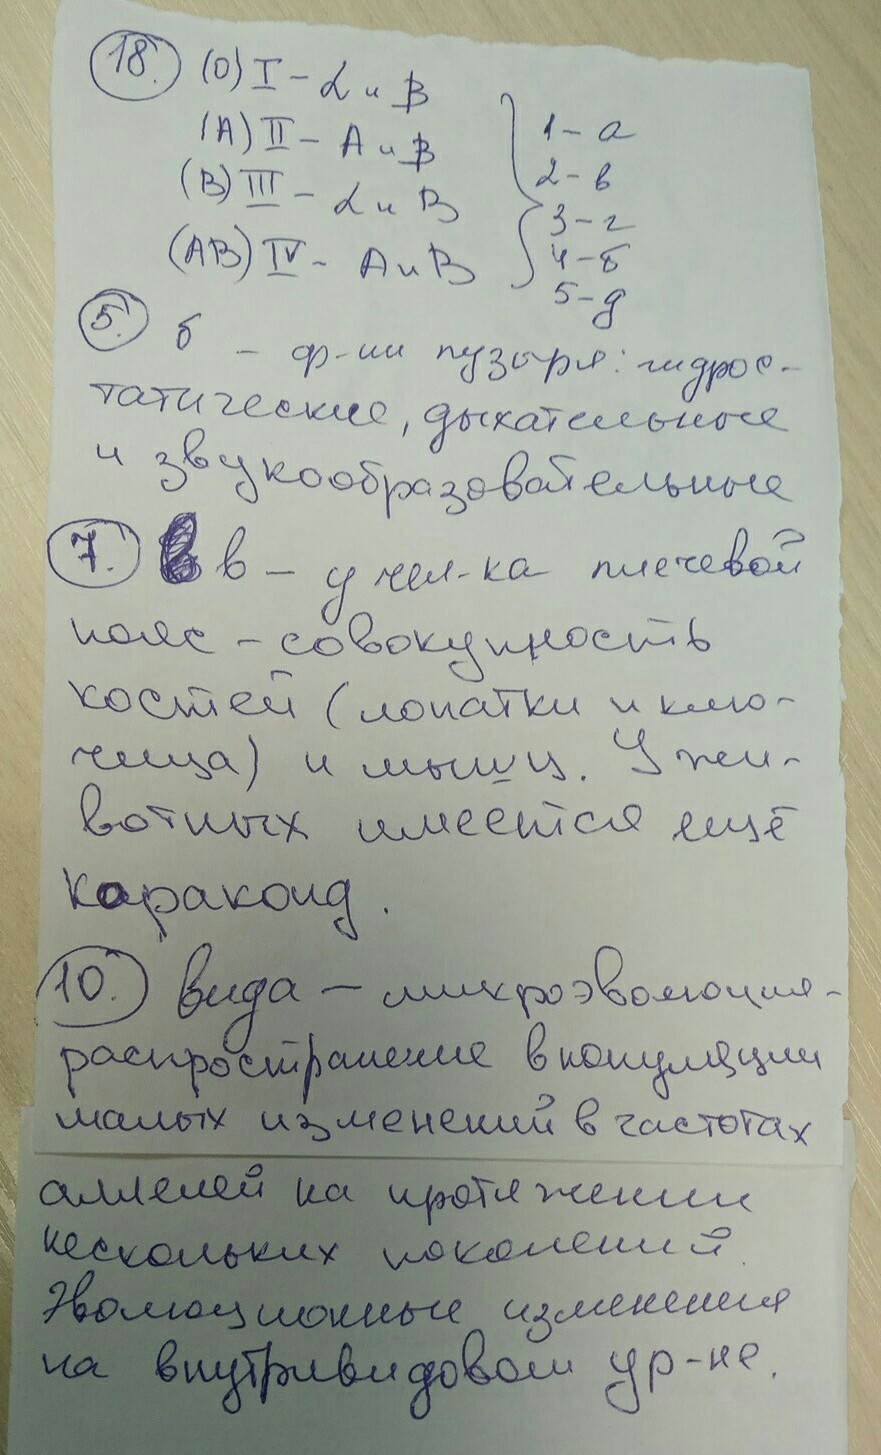 18. (0) I - α и β
(A) II - А и β
(B) III - α и В
(AB) IV - А и В
1 - а
2 - в
3 - г
4 - б
5 - д
5. б - ф-ии пузыря: гидрос-
татические, дыхательные
и звукообразовательные
7. в - у чел-ка плечевой
пояс - совокупность
костей (лопатки и клю-
чица) и мышц. У жи-
вотных имеется ещё
каракоид.
10. вида - микроэволюция -
распространение в популяции
малых изменений в частотах
аллелей на протяжении
нескольких поколений.
Эволюционные изменения
на внутривидовом ур-не.